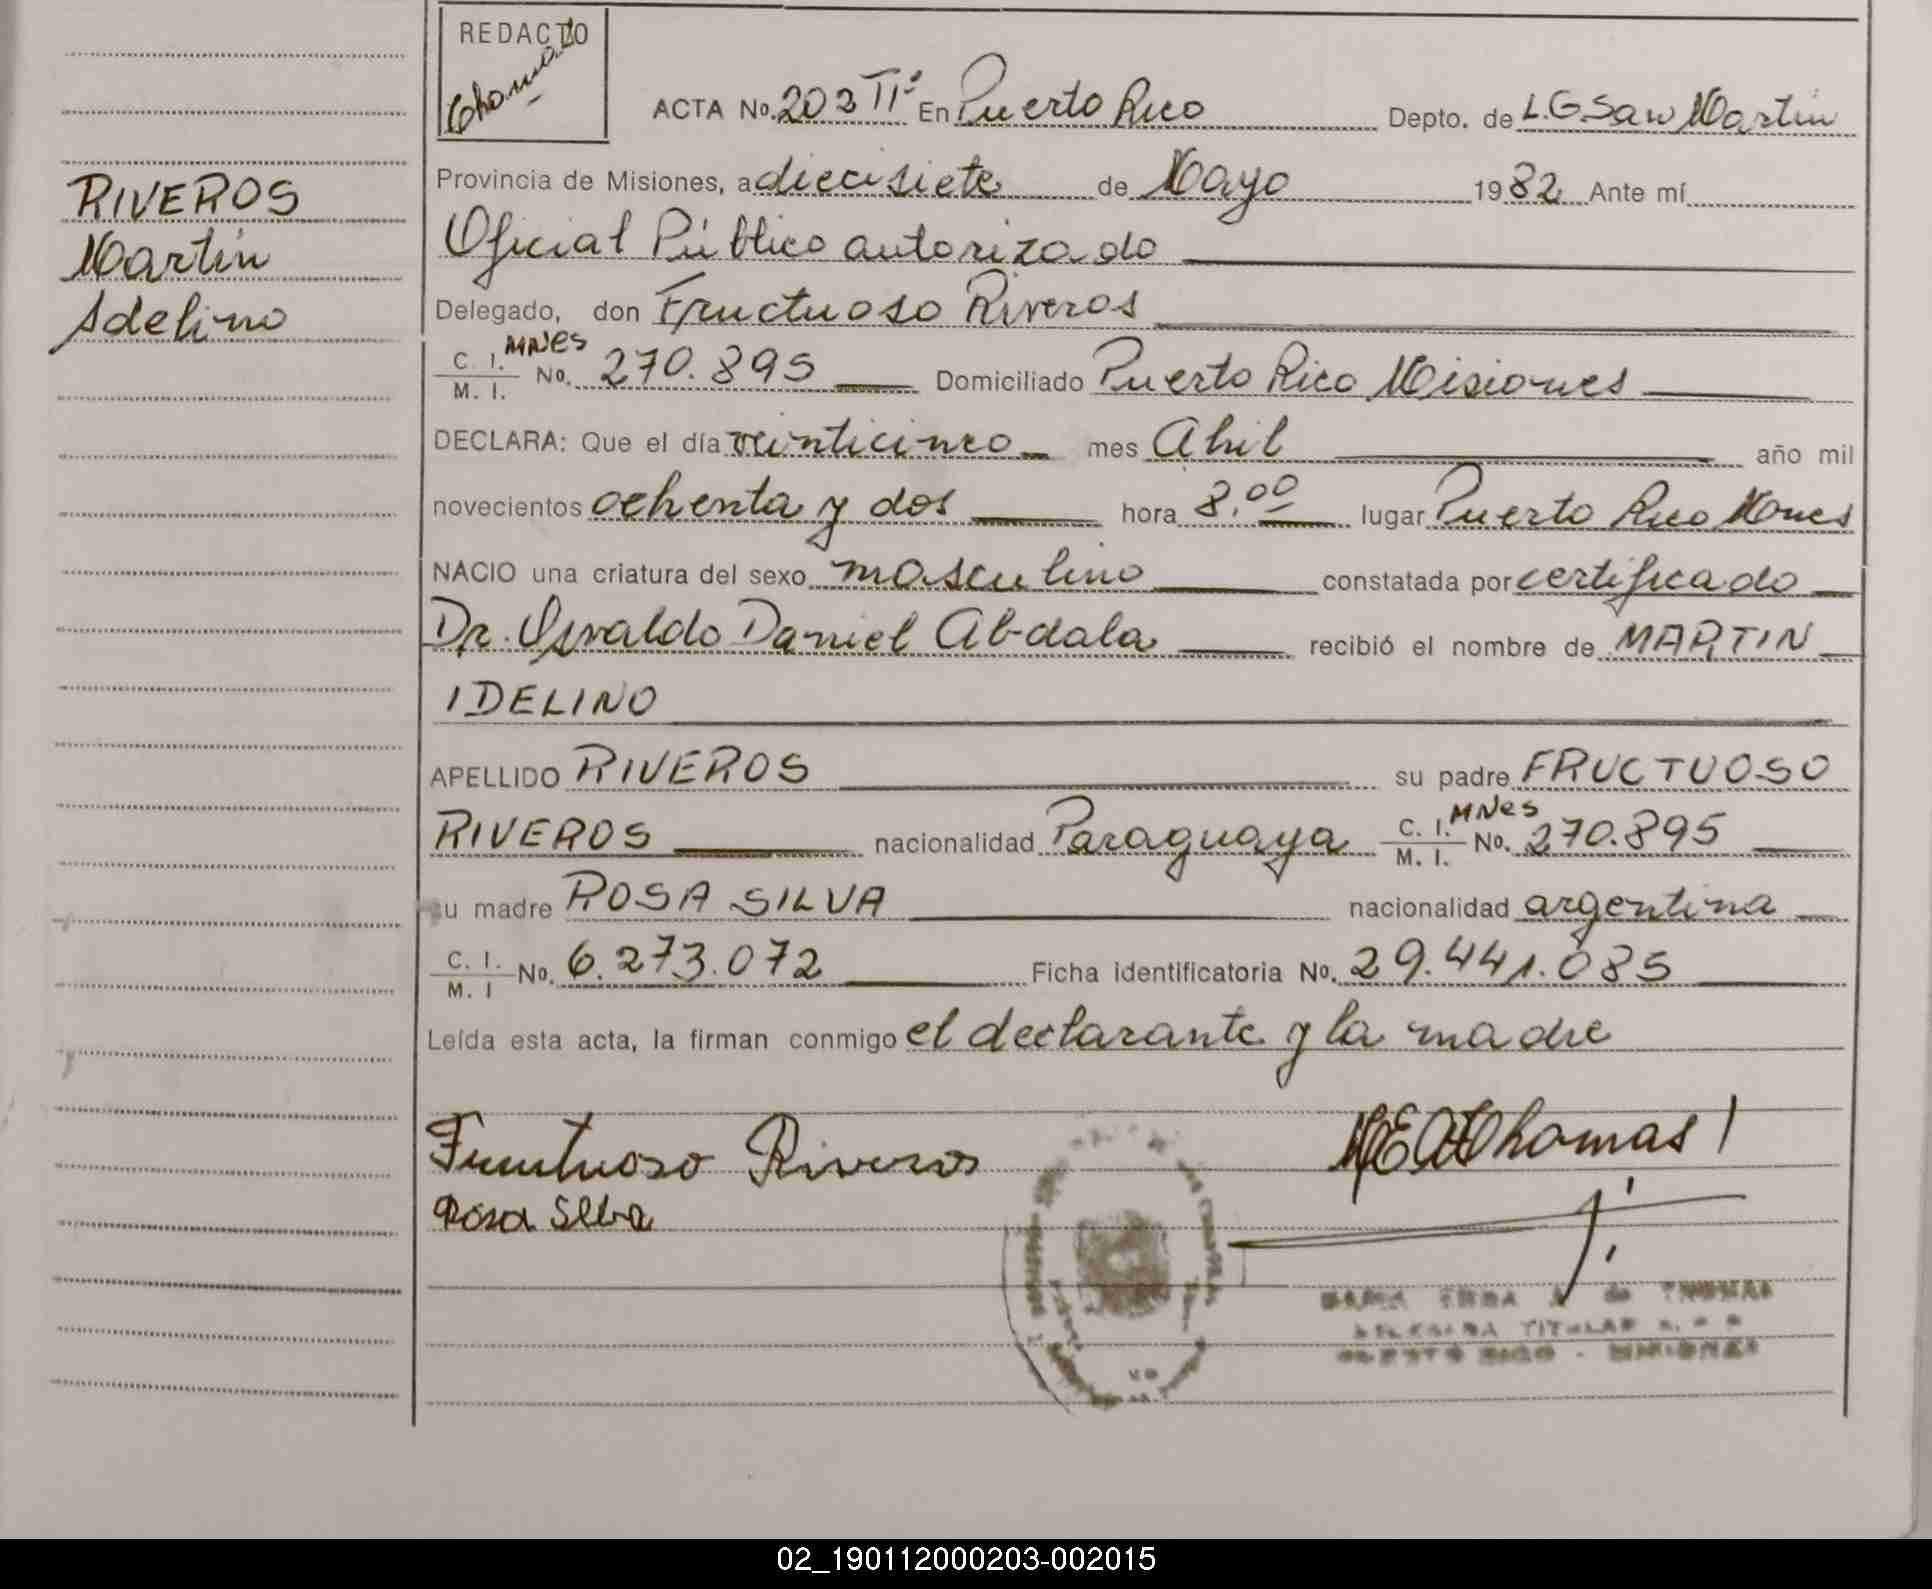 REDACTO
Thomas
ACTA No. 203 IIº En Puerto Rico Depto. de L.G.San Martín
Provincia de Misiones, a diecisiete de Mayo 1982 Ante mí
Oficial Público autorizado
Delegado, don Fructuoso Riveros
C. I. MNES
M. I. No. 270.895 Domiciliado Puerto Rico Misiones
DECLARA: Que el día veinticinco mes Abril año mil
novecientos ochenta y dos hora 8.00 lugar Puerto Rico Mones
NACIO una criatura del sexo masculino constatada por certificado
Dr. Osvaldo Daniel Abdala recibió el nombre de MARTIN
IDELINO
APELLIDO RIVEROS su padre FRUCTUOSO
RIVEROS nacionalidad Paraguaya C. I. M. I. MNes No. 270.895
su madre ROSA SILVA nacionalidad argentina
C. I. M. I No. 6.273.072 Ficha identificatoria No. 29.441.085
Leída esta acta, la firman conmigo el declarante y la madre
Fructuoso Riveros
Rosa Silva
Thomas
TITULAR
PUERTO RICO - MISIONES
RIVEROS
Martín
Adelino
02_190112000203-002015